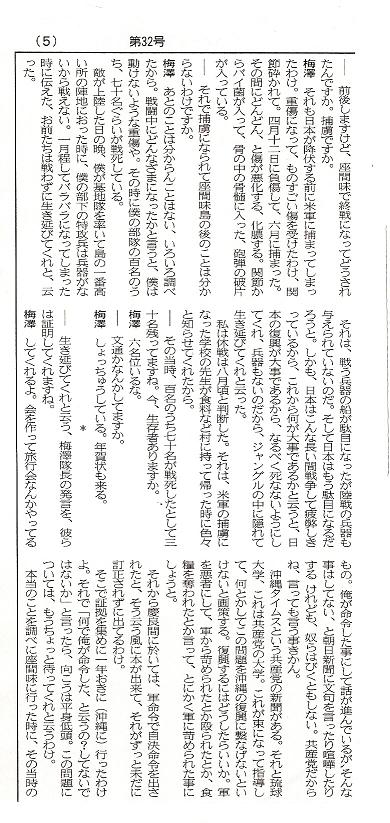 (5)
第32号
―― 前後しますけど、座間味で終戦になってどうされ
たんですか。捕虜ですか。
梅澤 それも日本が降伏する前に米軍に捕まってしまっ
たわけ。重傷になって、ものすごい傷を受けたわけ、関
節砕かれて。四月十二日に負傷して、六月に捕まった。
その間にどんどん、と傷が悪化する、化膿する。関節か
らバイ菌が入って、骨の中の骨髄に入った、砲弾の破片
が入っている。
―― それで捕虜になられて座間味島の後のことは分か
らないわけですか。
梅澤 あとのことは分からんことはない、いろいろ調べ
たから。戦闘中にどんなざまになったかと言うと、僕は
動けないような重傷、その時に僕の部隊の百名のう
ち、七十名ぐらいが戦死している。
敵が上陸した日の晩、僕が基地隊を率いて島の一番高
い所の陣地におった時に、僕の部下の特攻兵は兵器がな
いから戦えない。一月程してバラバラになってしまった
時に伝えた、お前たちは戦わずに生き延びてくれと、云
った。
それは、戦う兵器の船が駄目になったが陸戦の兵器も
与えられていないのだ。そして日本はもう駄目になるだ
ろうと。しかも、日本はこんな長い間戦争して疲弊しき
っているから、これから何が大事であるかと云うと、日
本の復興が大事であるから、なるべく死なないようにし
てくれ、兵器もないのだから、ジャングルの中に隠れて
生き延びてくれと云った。
私は休戦は八月頃と判断した。それは、米軍の捕虜に
なった学校の先生が食料など村に持って帰った時に色々
と知らせてくれたから。
―― その当時、百名のうち七十名が戦死したとして三
十名残ってますね。今、生存者ありますか。
梅澤 六名位いるな。
―― 文通かなんかしてますか。
梅澤 しょっちゅうしている。年賀状も来る。
*
―― 生き延びてくれと云う、梅澤隊長の発言を、彼ら
は証明してくれますね。
梅澤 してくれるよ。会を作って旅行会なんかやってる
もの。俺が命令した事にして話が進んでいるが、そんな
事はしてない、と朝日新聞に文句を言ったり喧嘩したり
する。けれども、奴らはびくともしない。共産党だから
ね、言っても言う事きかん。
沖縄タイムスという共産党の新聞がある。それと琉球
大学、これは共産党の大学。これが束になって指導し
て、何とかしてこの問題を沖縄の復興に繋なげないとい
けないと画策する。復興するにはどうしたらいいか。軍
を悪者にして、軍から苦められたとかやられたとか、食
糧を奪われたとか言って、とにかく軍に苛められた事に
しようと。
それから慶良間に於いては、軍命令で自決命令を出さ
れたと、そう云う風に本が出来て、それがずっと未だに
訂正されずに出てるわけ。
そこで証拠を集めに一年おきに(沖縄に)行ったわけ
よ。それで「何で俺が命令した、と云うの?してないで
はないか」と言ったら、向こうは平身低頭。この問題に
ついては、もうちょっと待ってくれと云うわけ。
本当のことを調べに座間味に行った時に、その当時の